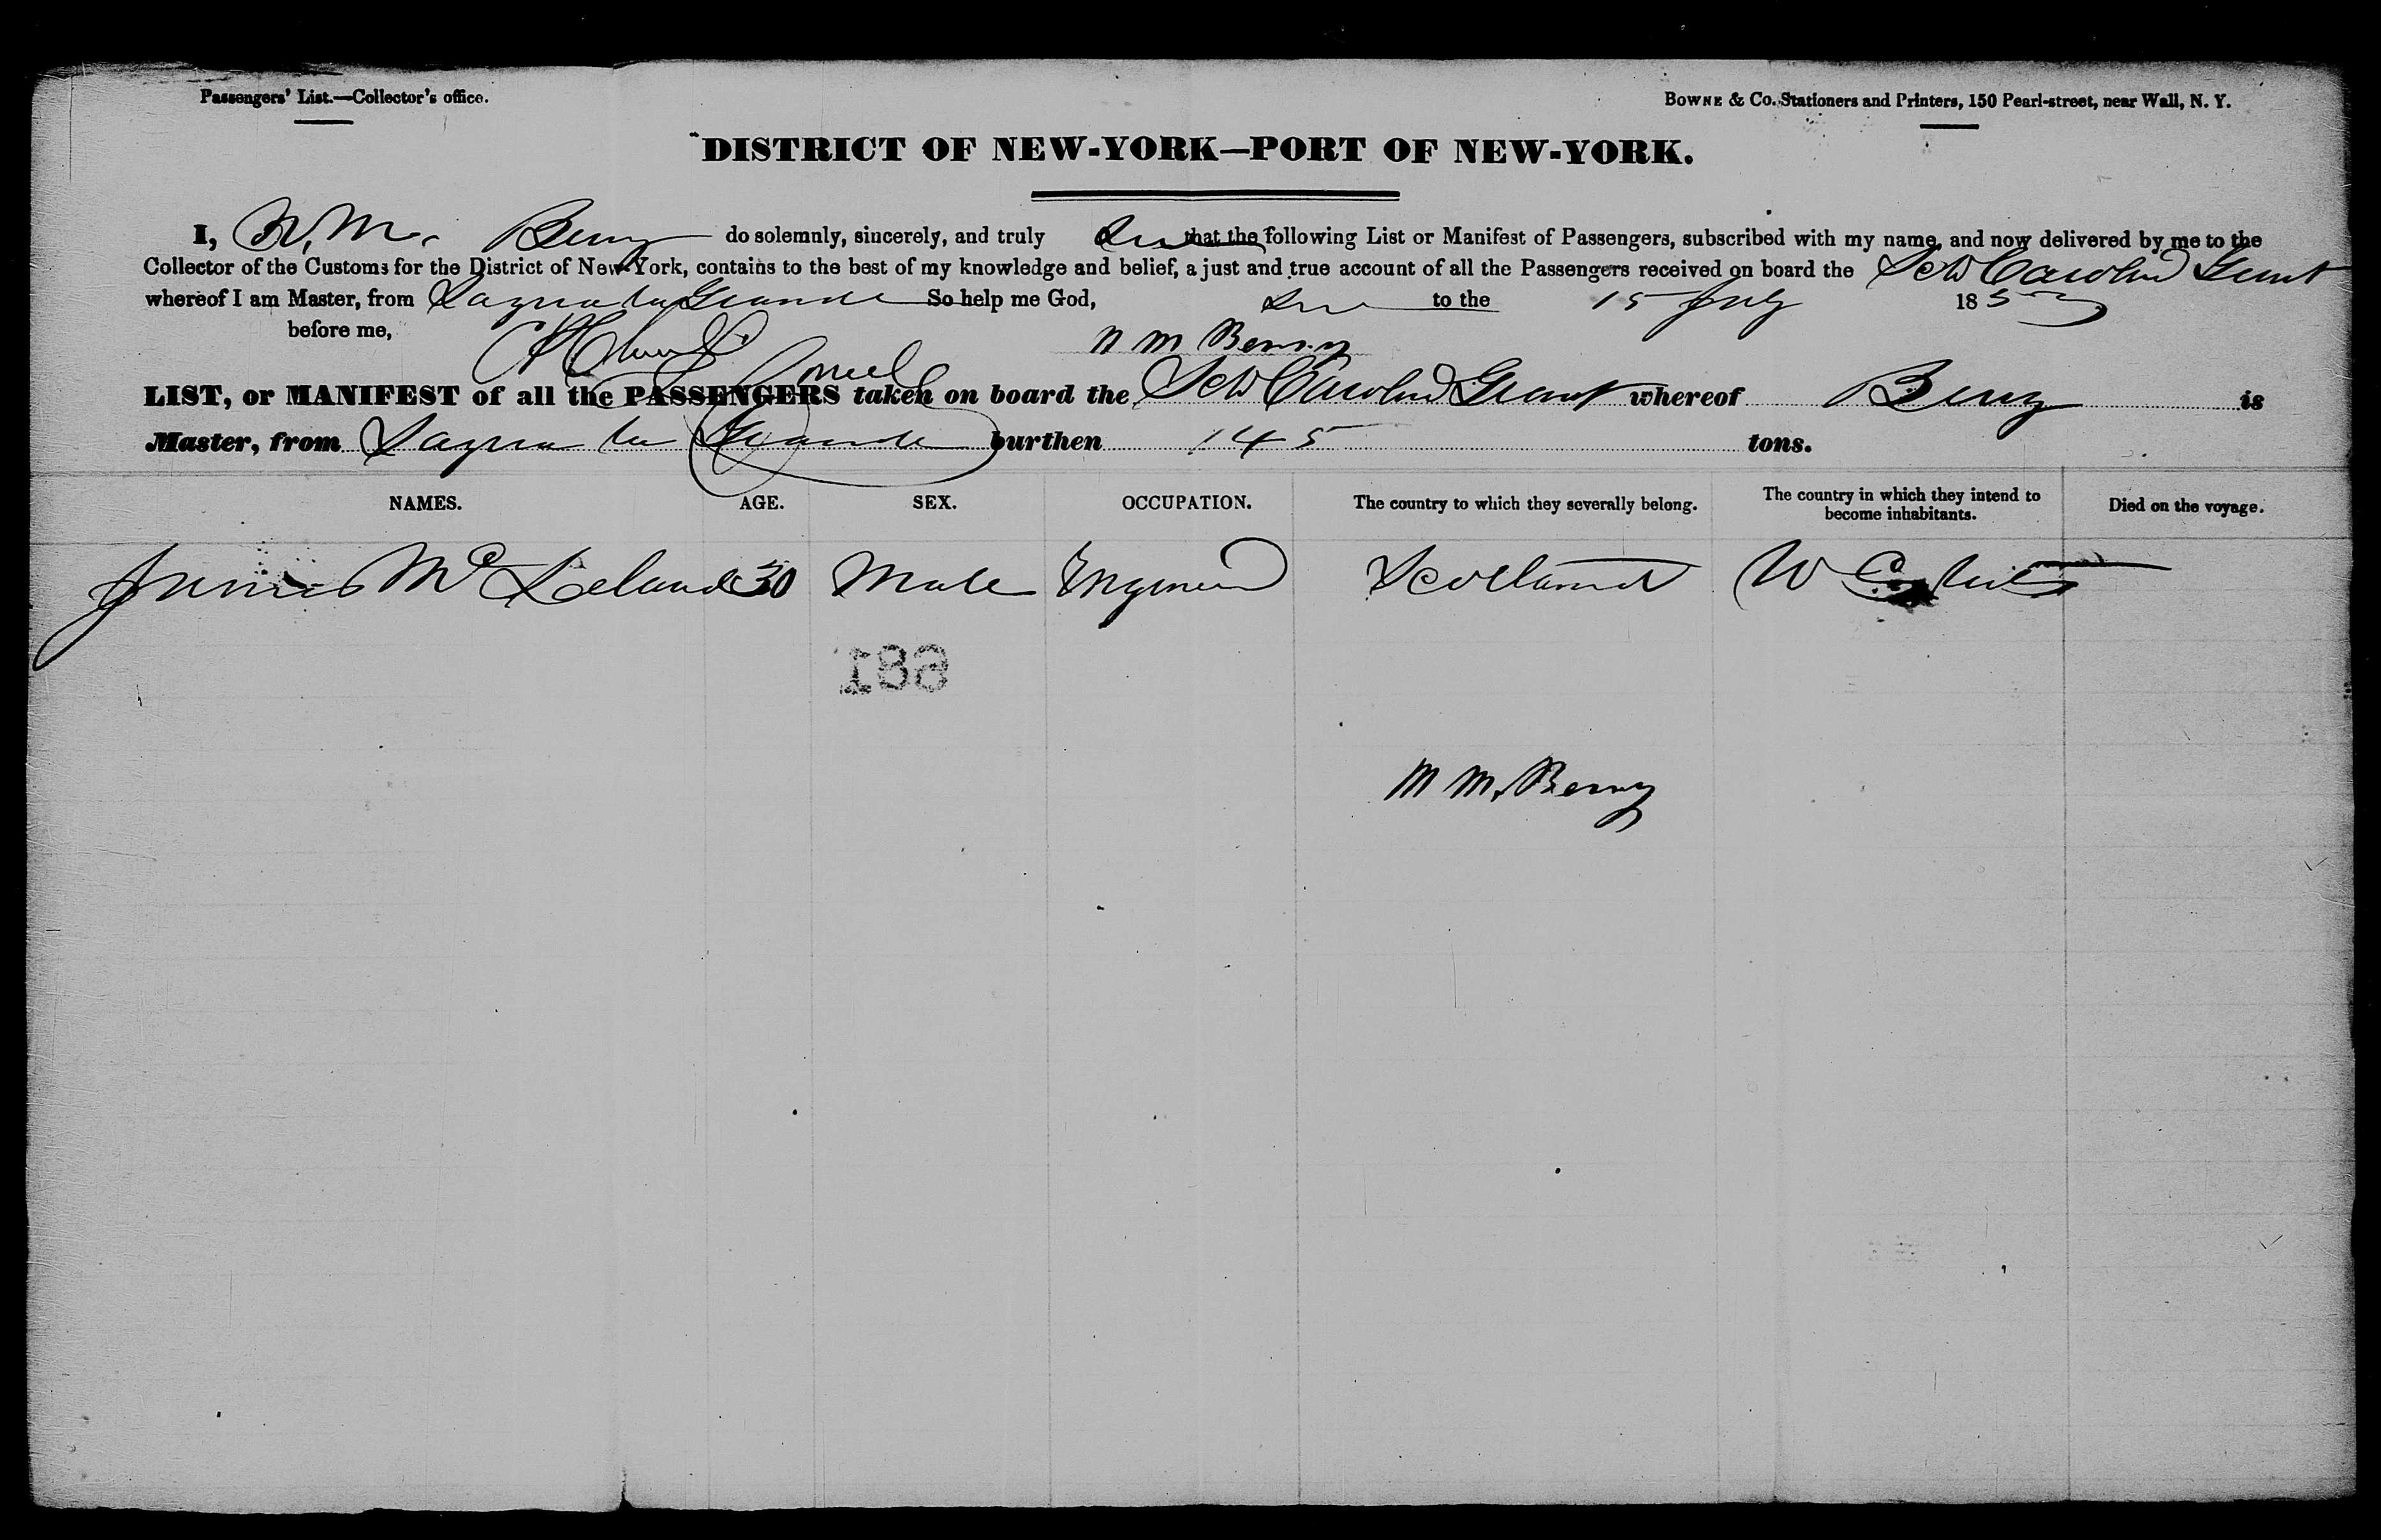 Passengers' List.—Collector's office.
BOWNE & Co. Stationers and Printers, 150 Pearl-street, near Wall, N. Y.
DISTRICT OF NEW-YORK—PORT OF NEW-YORK.
I, N. M. Berry do solemnly, sincerely, and truly that the following List or Manifest of Passengers, subscribed with my name, and now delivered by me to the
Collector of the Customs for the District of New-York, contains to the best of my knowledge and belief, a just and true account of all the Passengers received on board the Sch Carolin Grant
whereof I am Master, from Sagua la Grande So help me God, to the 15 July 185
before me, N M Berry
LIST, or MANIFEST of all the PASSENGERS taken on board the Sch Carolin Grant whereof Berry is
Master, from Sagua la Grande burthen 145 tons.
NAMES. AGE. SEX. OCCUPATION. The country to which they severally belong. The country in which they intend to become inhabitants. Died on the voyage.
James Mc Leland 30 Male Engineer Scotland U States
188
N M. Berry